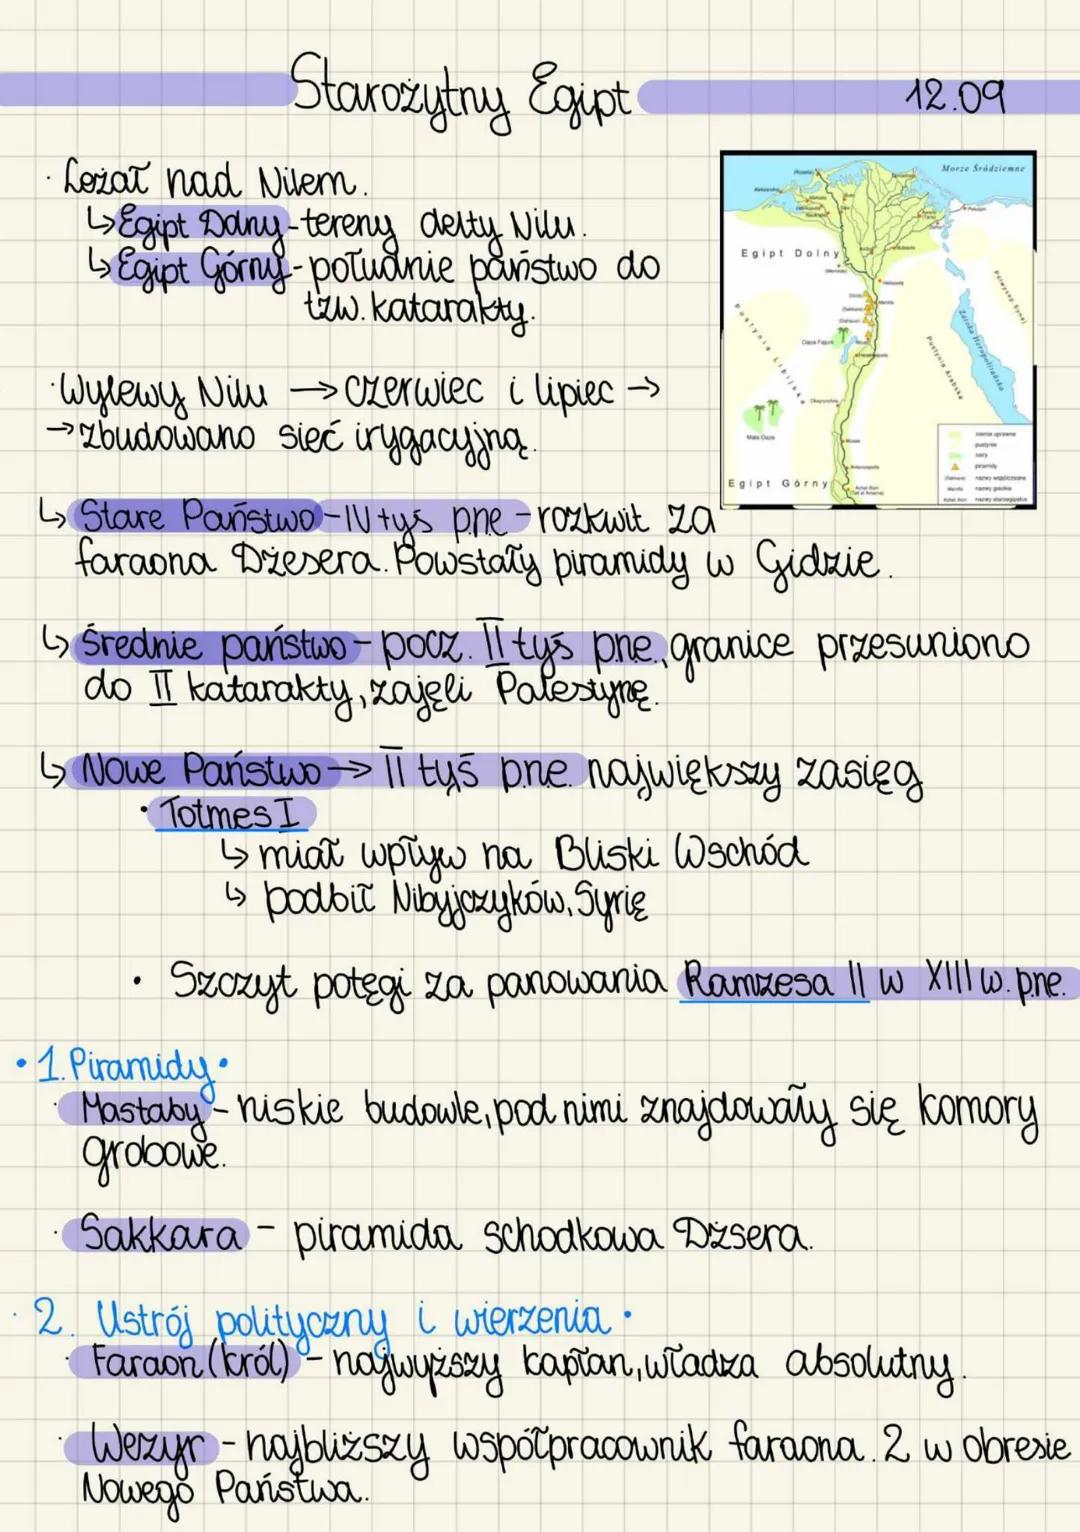 Starożytny Egipt
12.09
· Leżał nad Nilem.
↳ Egipt Dolny - tereny delty Nilu.
↳ Egipt Górny - południe państwo do
tzw. katarakty.
· Wylewy Nilu → czerwiec i lipiec →
→ zbudowano sieć irygacyjną.
Morze Śródziemne
Egipt Dolny
Pustynia Libijska
Pustynia Arabska
Oaza Fajum
Mała Oaza
Egipt Górny
ziemie uprawne
pustynie
oazy
piramidy
nazwy współczesne
nazwy greckie
nazwy staroegipskie
↳ Stare Państwo - IV tyś pne - rozkwit za
faraona Dżesera. Powstały piramidy w Gidzie.
↳ Średnie państwo - pocz. II tyś pne, granice przesuniono
do II katarakty, zajęli Palestynę.
↳ Nowe Państwo → II tyś pne. największy zasięg
· Totmes I
↳ miał wpływ na Bliski Wschód
↳ podbił Nibyjczyków, Syrię
· Szczyt potęgi za panowania Ramzesa II w XIII w. pne.
· 1. Piramidy ·
· Mastaby - niskie budowle, pod nimi znajdowały się komory
grobowe.
· Sakkara - piramida schodkowa Dżsera.
· 2. Ustrój polityczny i wierzenia ·
· Faraon (król) - najwyższy kapłan, władza absolutny.
· Wezyr - najbliższy współpracownik faraona. 2 w obresie
Nowego Państwa.